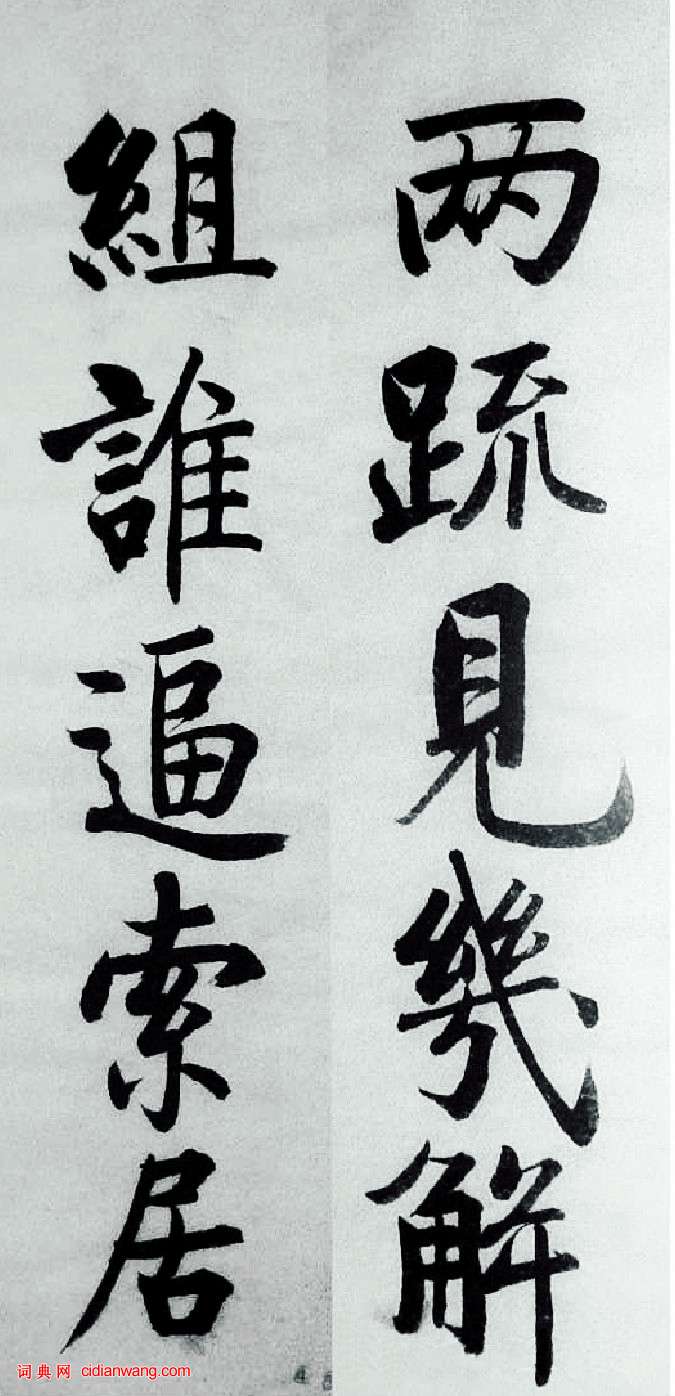 两疏見幾解
組誰逼索居
词典网 cidianwang.com